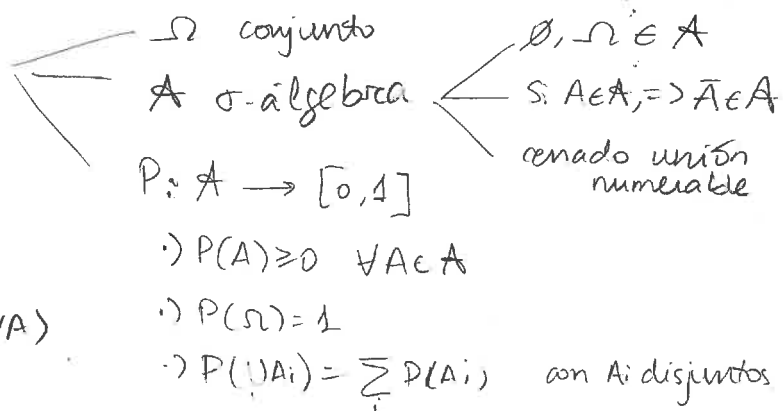 Ω conjunto
A σ-álgebra
∅, Ω ∈ A
Si A∈A, => Ā∈A
cerrado unión
numerable
P: A → [0,1]
·) P(A)≥0 ∀A∈A
·) P(Ω)=1
·) P(∪Ai) = Σ P(Ai) con Ai disjuntos
i